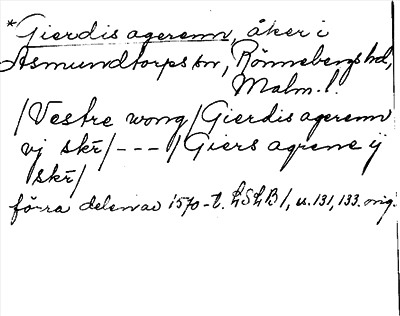 *Gierdis agerenn, åker i
Asmundtorps sn, Rönnebergs hd,
Malm. l.
/Vestre wong/Gierdis agerenn
vj skr/---/Giers agrene ij
skr/
förra delen av 1570-t. LSLB/, u. 131, 133. orig.